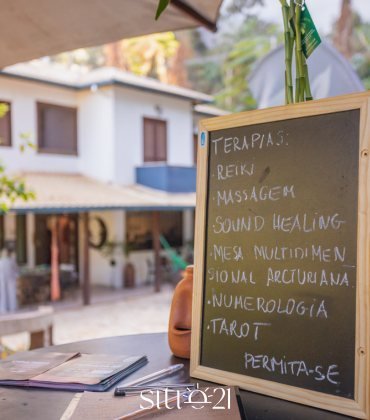 TERAPIAS:
·REIKI
·MASSAGEM
SOUND HEALING
·MESA MULTIDIMEN
SIONAL ARCTURIANA
·NUMEROLOGIA
·TAROT
PERMITA-SE
sítio 21